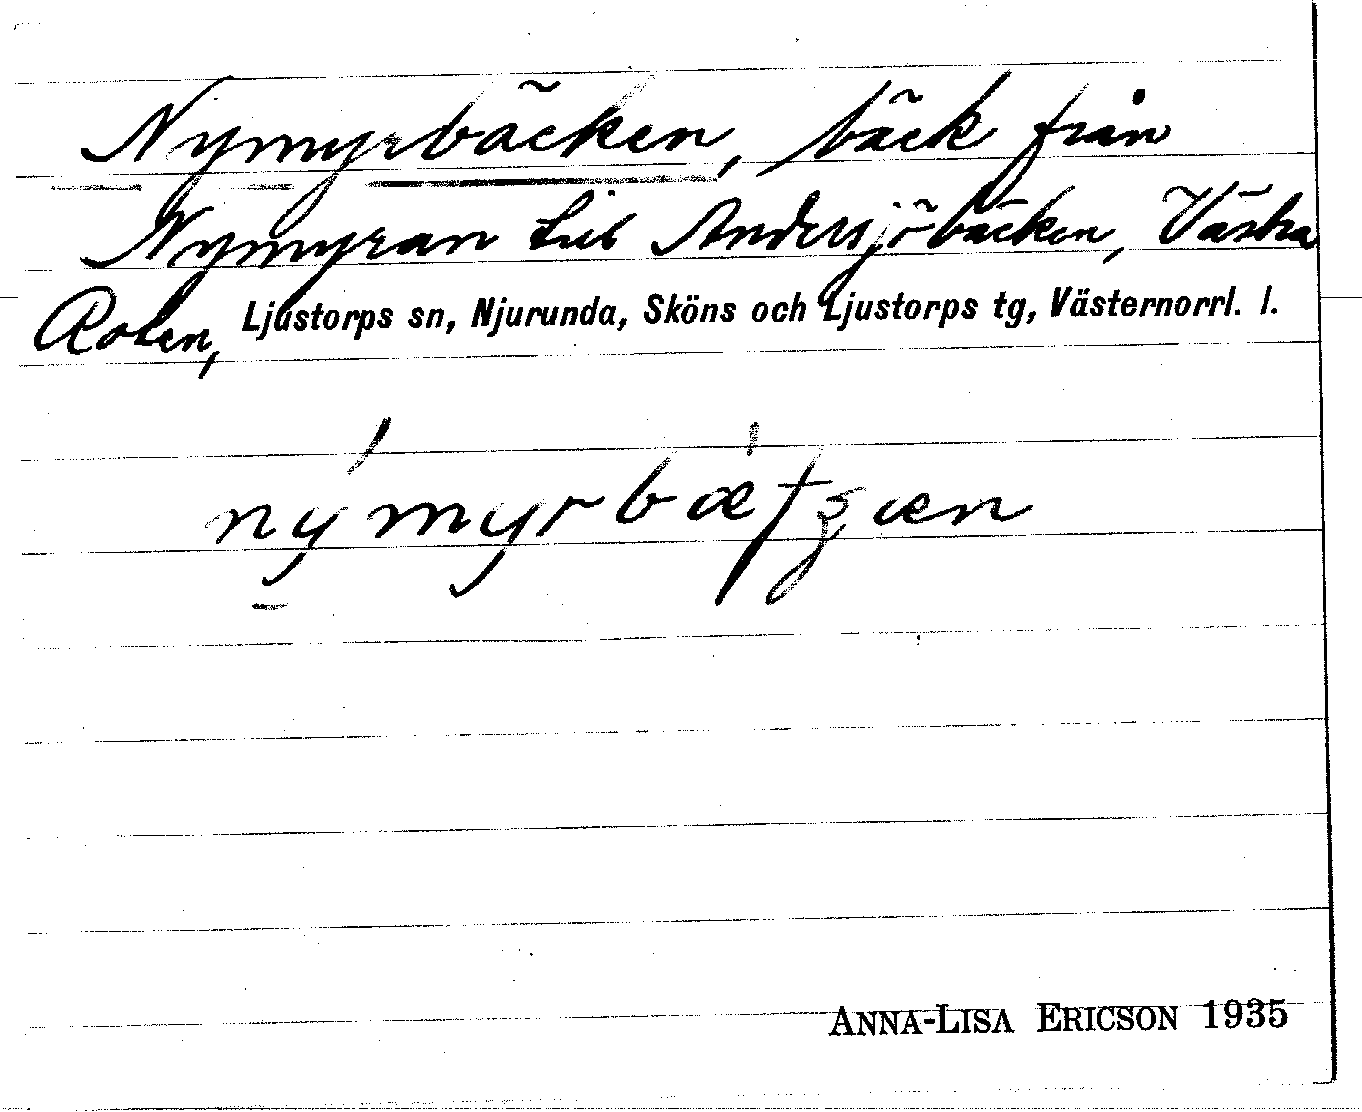 Nymyrbäcken, bäck från
Nymyran till Andersjöbäcken, Västra
Roten, Ljustorps sn, Njurunda, Sköns och Ljustorps tg, Västernorrl. l.
ANNA-LISA ERICSON 1935